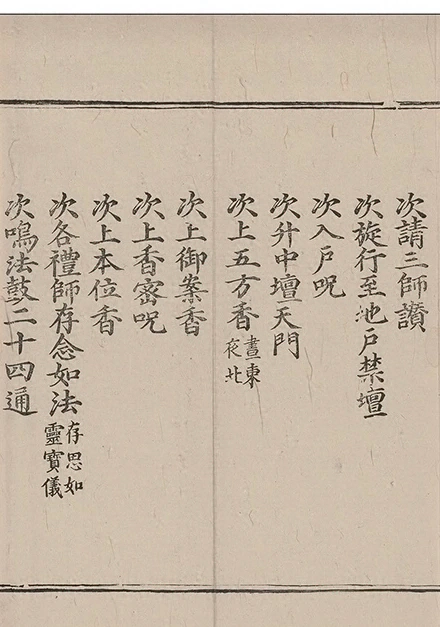 次請三師讚
次旋行至地戶禁壇
次入戶呪
次升中壇天門
次上五方香晝東夜北
次上御案香
次上香密呪
次上本位香
次各禮師存念如法存思如靈寶儀
次鳴法鼓二十四通